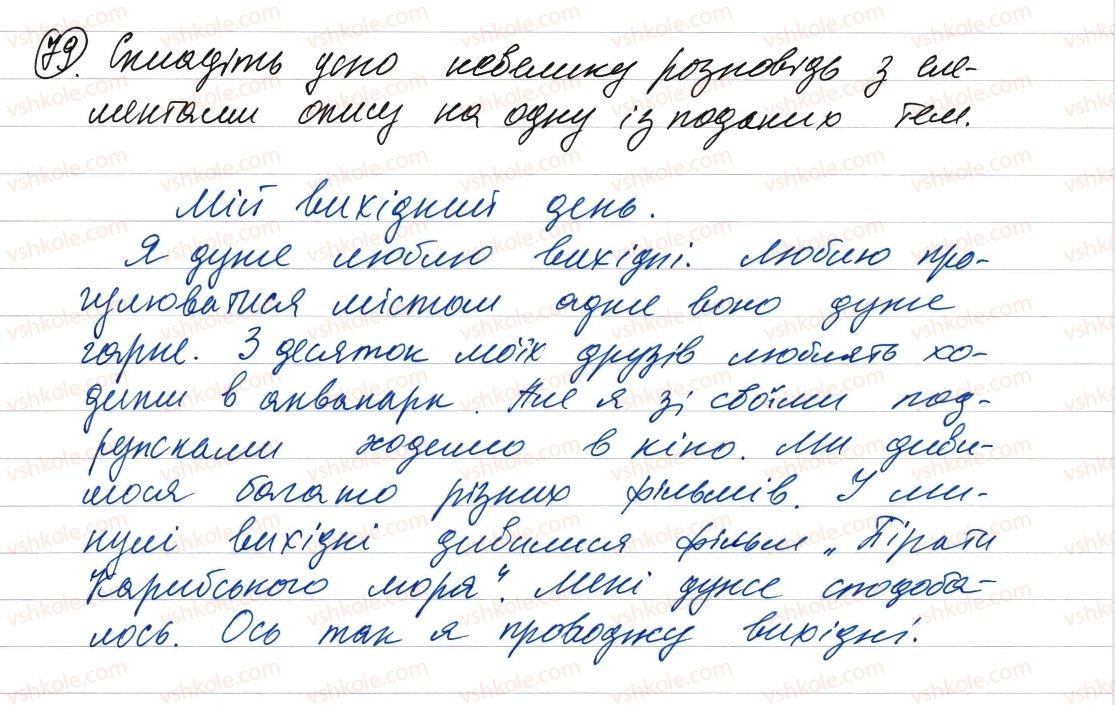 79. Складіть усно невелику розповідь з еле-
ментами опису на одну із поданих тем.
Мій вихідний день.
Я дуже люблю вихідні. Люблю про-
гулюватися містом адже воно дуже
гарне. З десяток моїх друзів люблять хо-
дити в аквапарк. Але я зі своїми под-
ружками ходимо в кіно. Ми диви-
мося багато різних фільмів. У ми-
нулі вихідні дивилися фільм „Пірати
Карибського моря“. Мені дуже сподоба-
лось. Ось так я проводжу вихідні.